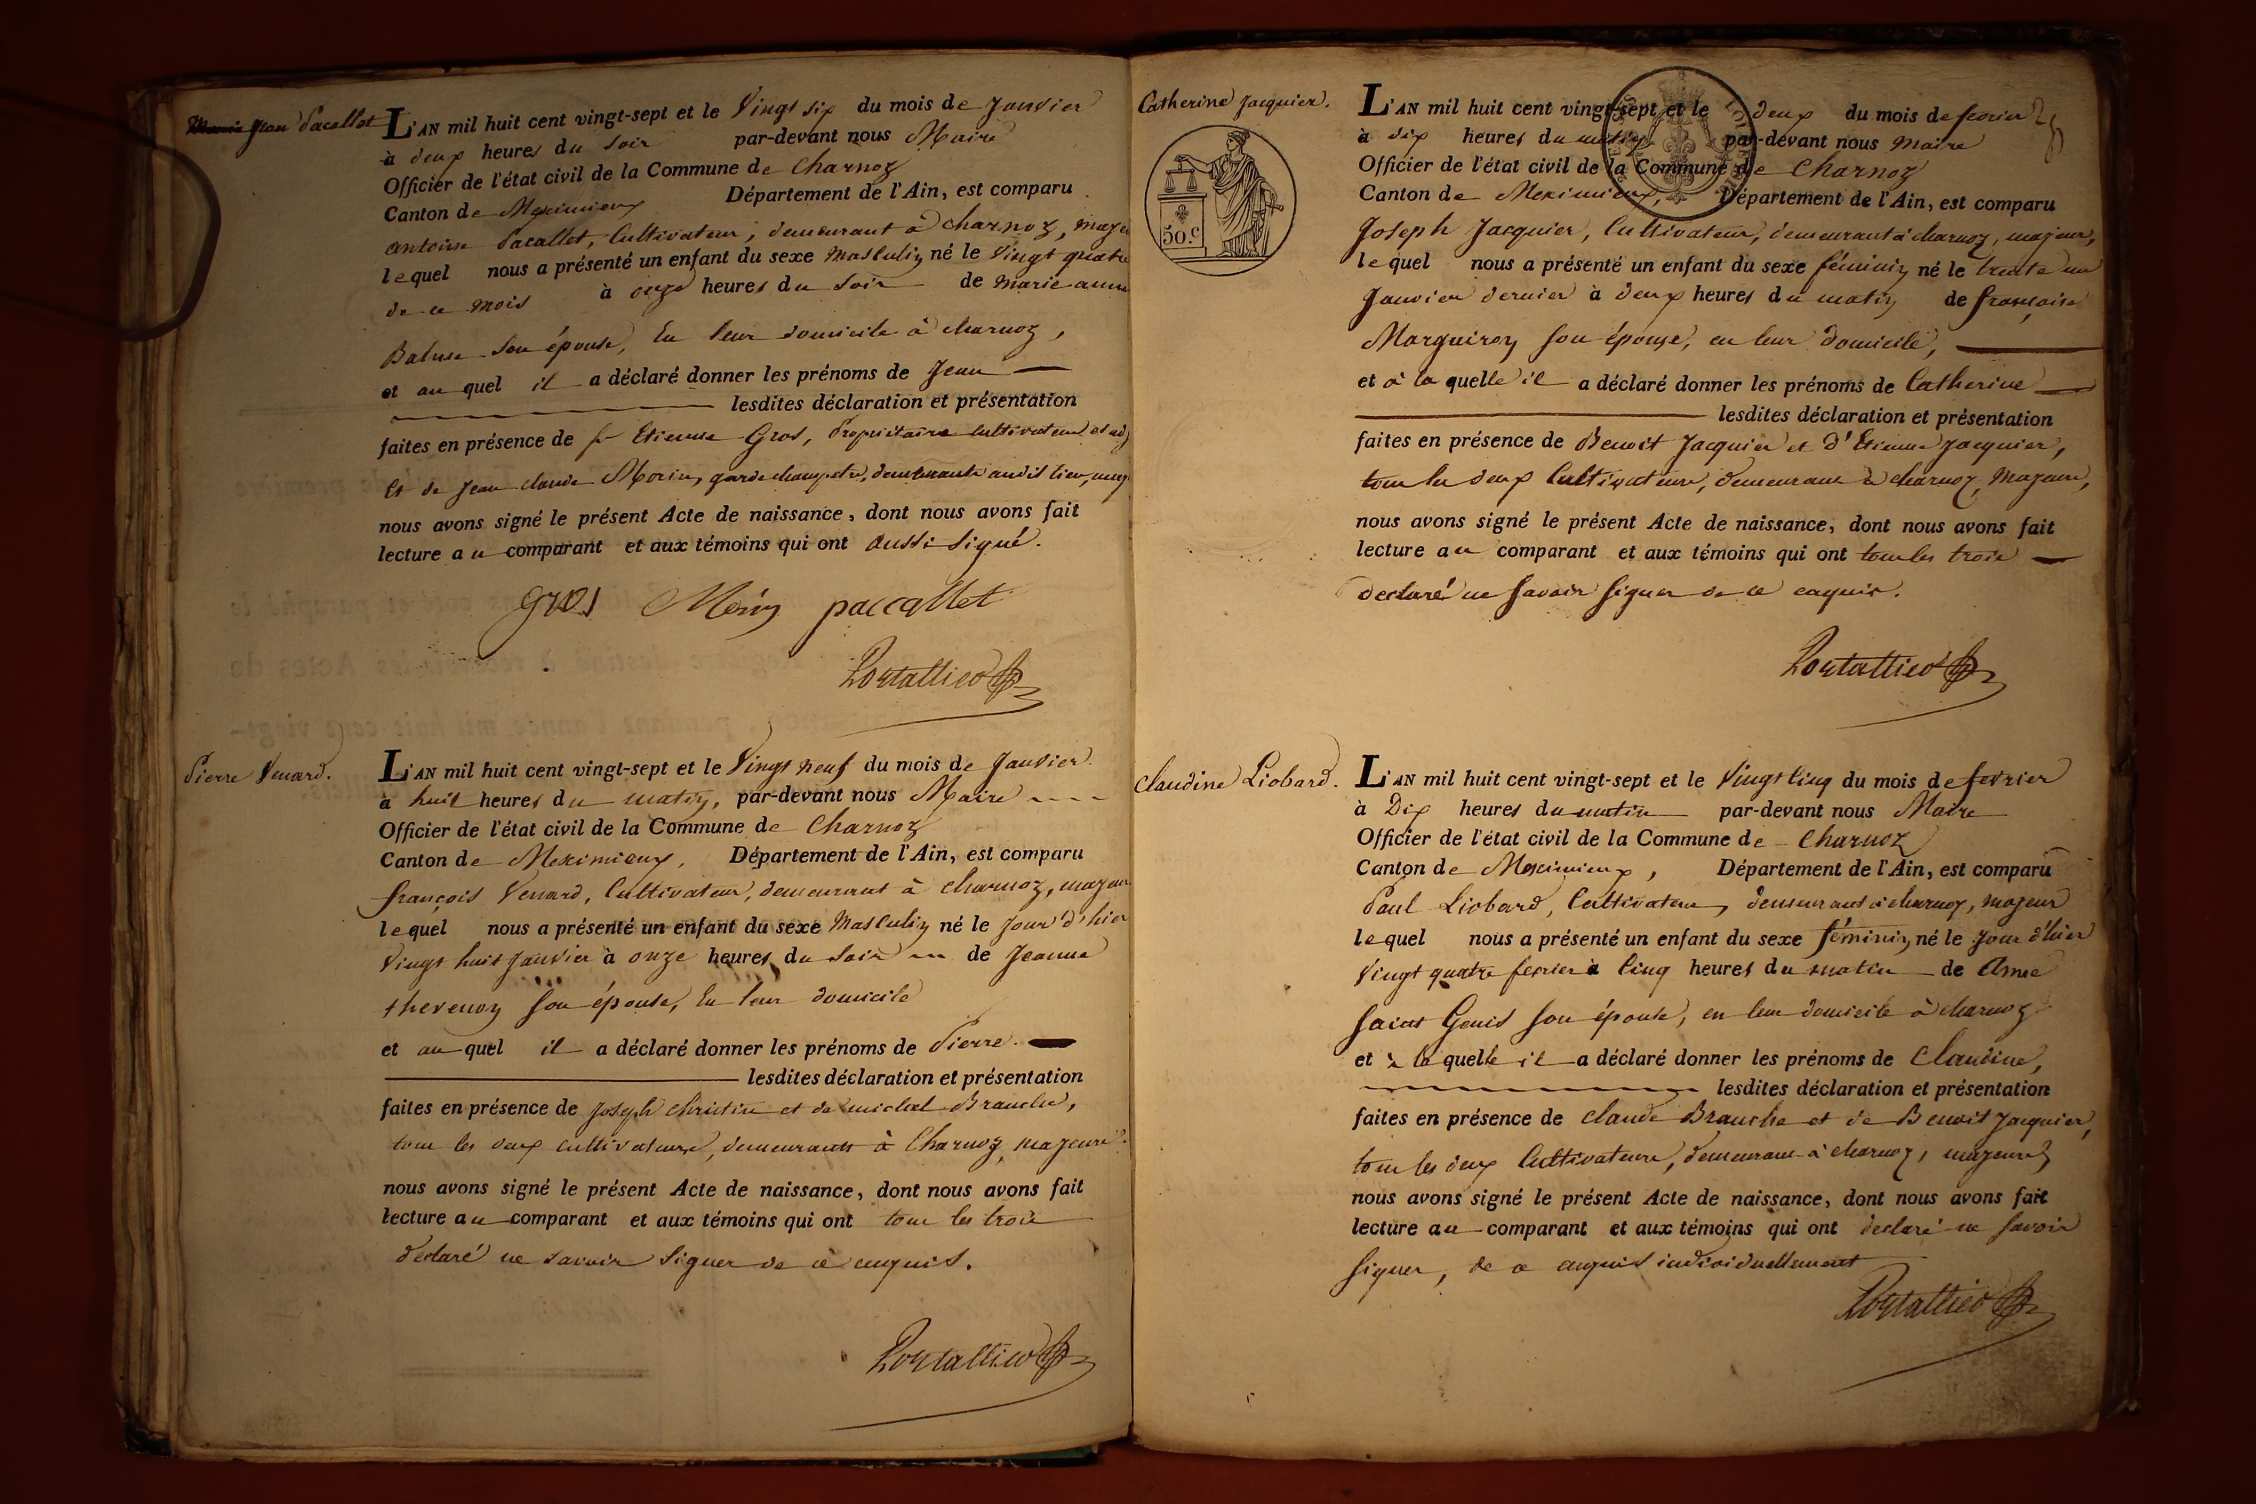 Jean Pacallet
L'AN mil huit cent vingt-sept et le Vingt six du mois de Janvier
à deux heures du soir par-devant nous Maire
Officier de l'état civil de la Commune de Charnoz
Canton de Meximieux Département de l'Ain, est comparu
antoine Pacallet, Cultivateur, demeurant à charnoz,
lequel nous a présenté un enfant du sexe Masculin né le Vingt quatre
de ce mois à onze heures du soir de marie anne
son épouse, En leur domicile à charnoz,
et au quel il a déclaré donner les prénoms de Jean
lesdites déclaration et présentation
faites en présence de Etienne Gros, Propriétaire cultivateur
Et de Jean claude Morin, garde champetre, demeurants audit lieu,
nous avons signé le présent Acte de naissance, dont nous avons fait
lecture au comparant et aux témoins qui ont aussi signé.
gros Morin paccallet
Portallier
Pierre Venard.
L'AN mil huit cent vingt-sept et le Vingt neuf du mois de Janvier
à huit heures du matin, par-devant nous Maire
Officier de l'état civil de la Commune de Charnoz
Canton de Meximieux, Département de l'Ain, est comparu
françois Venard, Cultivateur, demeurant à charnoz, majeur
lequel nous a présenté un enfant du sexe Masculin né le jour d'hier
Vingt huit Janvier à onze heures du soir de Jeanne
thevenon son épouse, En leur domicile
et au quel il a déclaré donner les prénoms de Pierre
lesdites déclaration et présentation
faites en présence de Joseph christin et de michel Branche,
tous les deux cultivateurs, demeurants à Charnoz, majeurs
nous avons signé le présent Acte de naissance, dont nous avons fait
lecture au comparant et aux témoins qui ont tous les trois
déclaré ne savoir signer de ce enquis.
Portallier
Catherine Jacquier.
50.c
L'AN mil huit cent vingt-sept et le deux du mois de fevrier
à dix heures du matin par-devant nous Maire
Officier de l'état civil de la Commune de Charnoz
Canton de Meximieux, Département de l'Ain, est comparu
Joseph Jacquier, Cultivateur, demeurant à charnoz, majeur,
lequel nous a présenté un enfant du sexe féminin né le trente un
Janvier dernier à deux heures du matin de françoise
Marguiron son épouse, en leur domicile,
et à la quelle il a déclaré donner les prénoms de Catherine
lesdites déclaration et présentation
faites en présence de Benoit Jacquier et d'Etienne Jacquier,
tous les deux Cultivateurs, demeurans à charnoz, Majeurs,
nous avons signé le présent Acte de naissance, dont nous avons fait
lecture au comparant et aux témoins qui ont tous les trois
declaré ne savoir signer de ce enquis.
Portallier
Claudine Liobard.
L'AN mil huit cent vingt-sept et le Vingt Cinq du mois de fevrier
à Dix heures du matin par-devant nous Maire
Officier de l'état civil de la Commune de Charnoz
Canton de Meximieux, Département de l'Ain, est comparu
Paul Liobard, Cultivateur, demeurant à charnoz, majeur
lequel nous a présenté un enfant du sexe féminin, né le jour d'hier
Vingt quatre fevrier à Cinq heures du matin de Anne
saint Genis son épouse, en leur domicile à charnoz
et à la quelle il a déclaré donner les prénoms de Claudine,
lesdites déclaration et présentation
faites en présence de claude Branche et de Benoit Jacquier,
tous les deux Cultivateurs, demeurans à charnoz, majeurs
nous avons signé le présent Acte de naissance, dont nous avons fait
lecture au comparant et aux témoins qui ont declaré ne savoir
signer, de ce enquis individuellement
Portallier